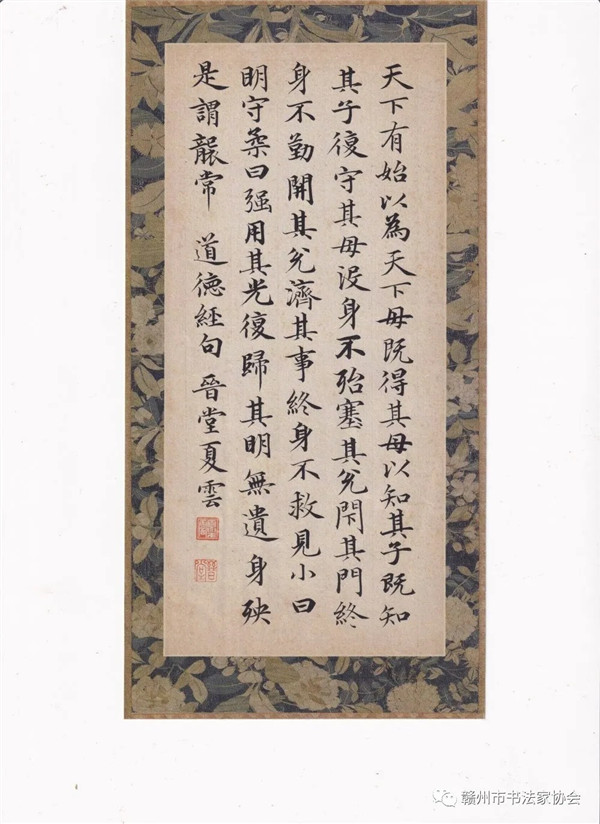 天下有始以為天下母既得其母以知其子既知
其子復守其母没身不殆塞其兌閉其門終
身不勤開其兌濟其事終身不救見小曰
明守柔曰强用其光復歸其明無遺身殃
是謂襲常 道德經句 晉堂夏雲
赣州市书法家协会